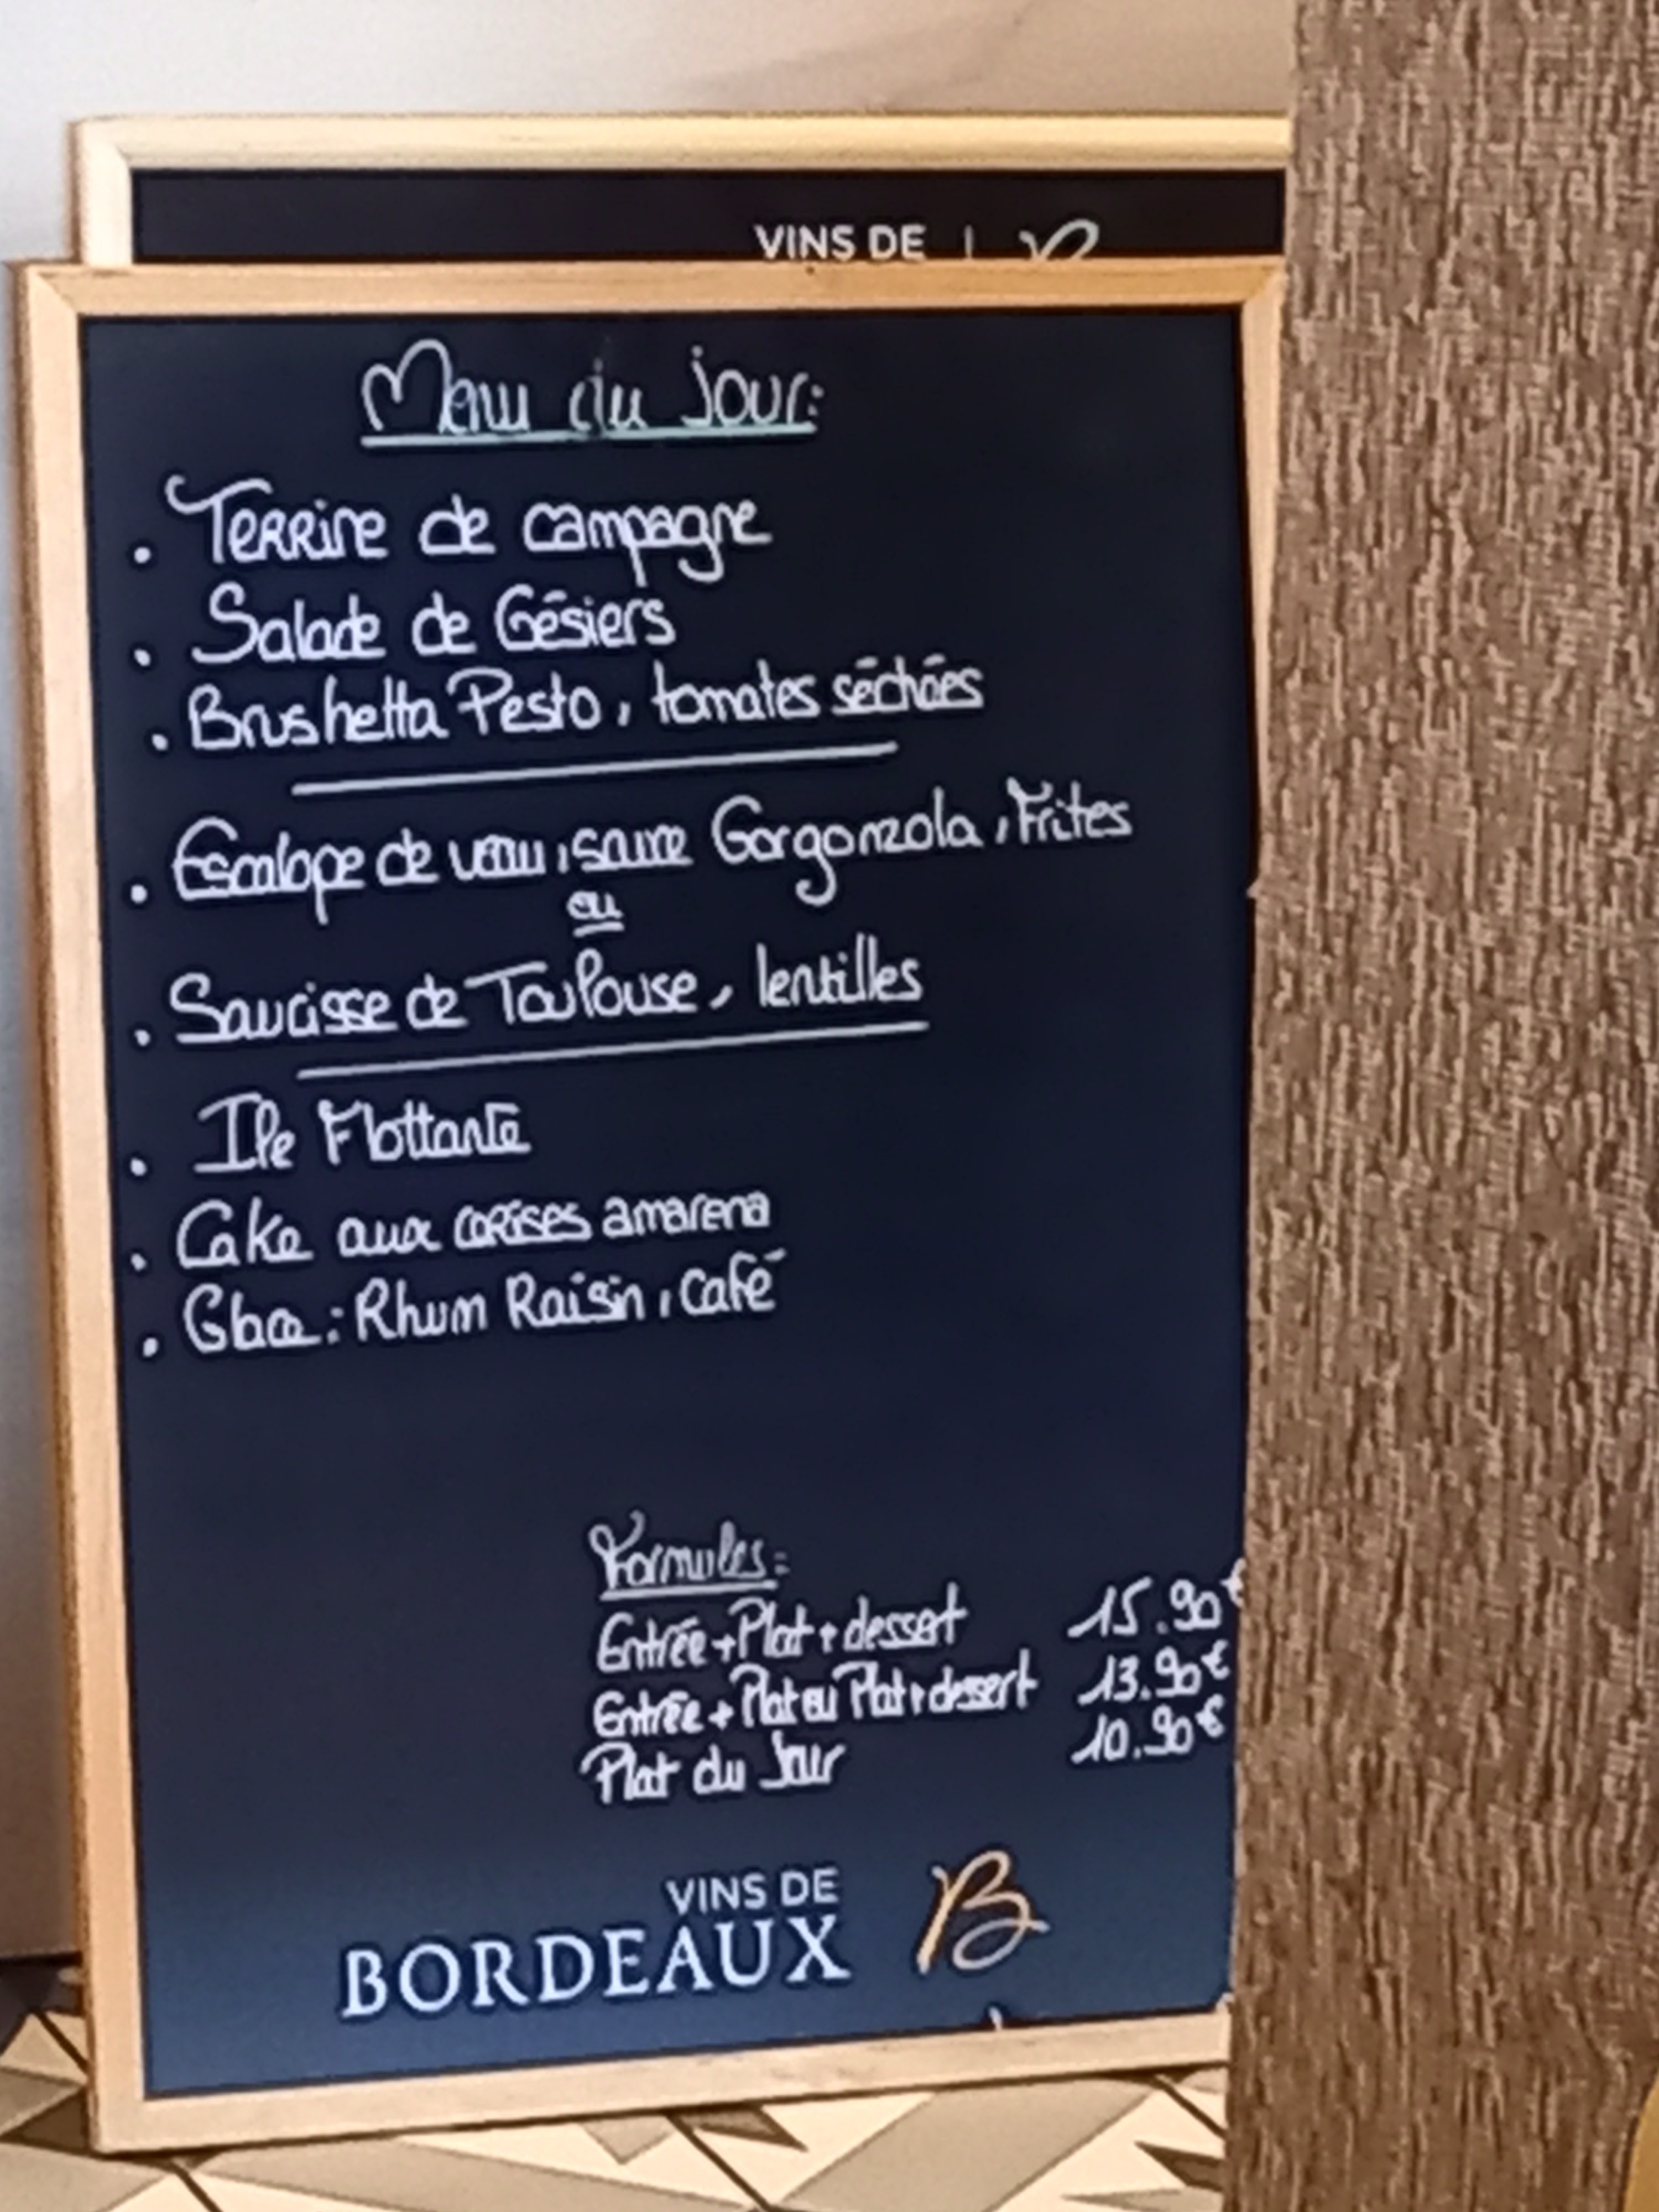 VINS DE
Menu du Jour:
. Terrine de campagne
. Salade de Gésiers
. Brushetta Pesto, tomates séchées
. Escalope de veau, sauce Gorgonzola, Frites
ou
. Saucisse de Toulouse, lentilles
. Ile Flottante
. Cake aux cerises amarena
. Glace: Rhum Raisin, café
Formules:
Entrée+Plat+dessert 15.90€
Entrée+Plat ou Plat+dessert 13.90€
Plat du Jour 10.90€
VINS DE
BORDEAUX B